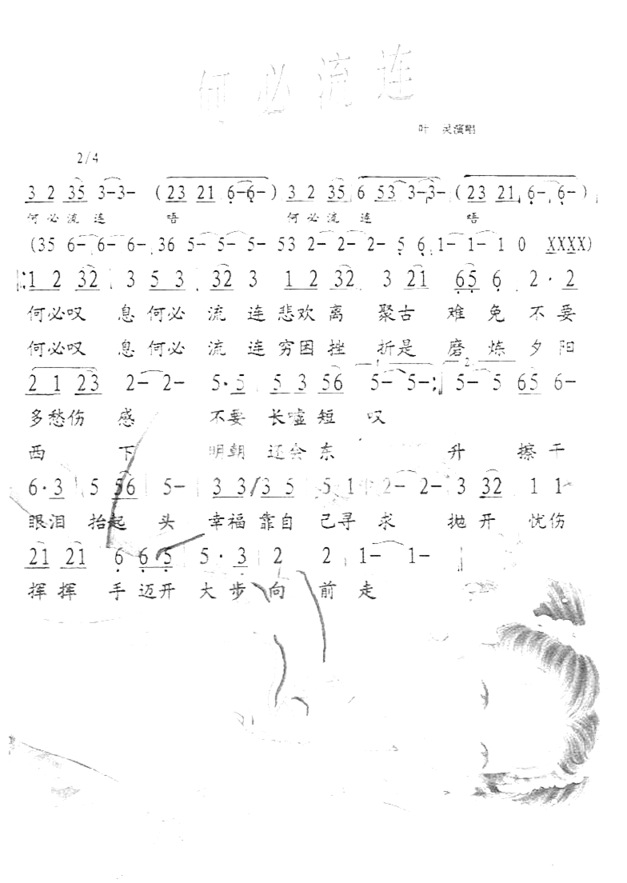 何必流连
叶 灵演唱
2/4
3 2 35 3-3- (23 21 6-6-) 3 2 35 6 53 3-3- (23 21 6-6-)
何必流连 唔 何必流连 唔
(35 6-6-6- 36 5-5-5- 53 2-2-2- 5 6-1-1- 1 0 XXXX)
1 2 32 3 5 3 32 3 1 2 32 3 21 65 6 2·2
何必叹 息何必 流 连悲欢 离 聚古 难 免不要
何必叹 息何必 流 连穷困 挫 折是 磨 炼夕阳
2 1 23 2-2- 5·5 5 3 56 5-5- 5-5 65 6-
多愁伤 感 不要长嘘短 叹
西 下 明朝 还会东 升 擦干
6·3 5 56 5- 3 3 3 5 5 1 2-2- 3 32 1 1
眼泪 抬起 头 幸福靠自 己寻 求 抛开 忧伤
21 21 6 6 5 5·3 2 2 1-1-
挥挥 手迈开 大步向 前走